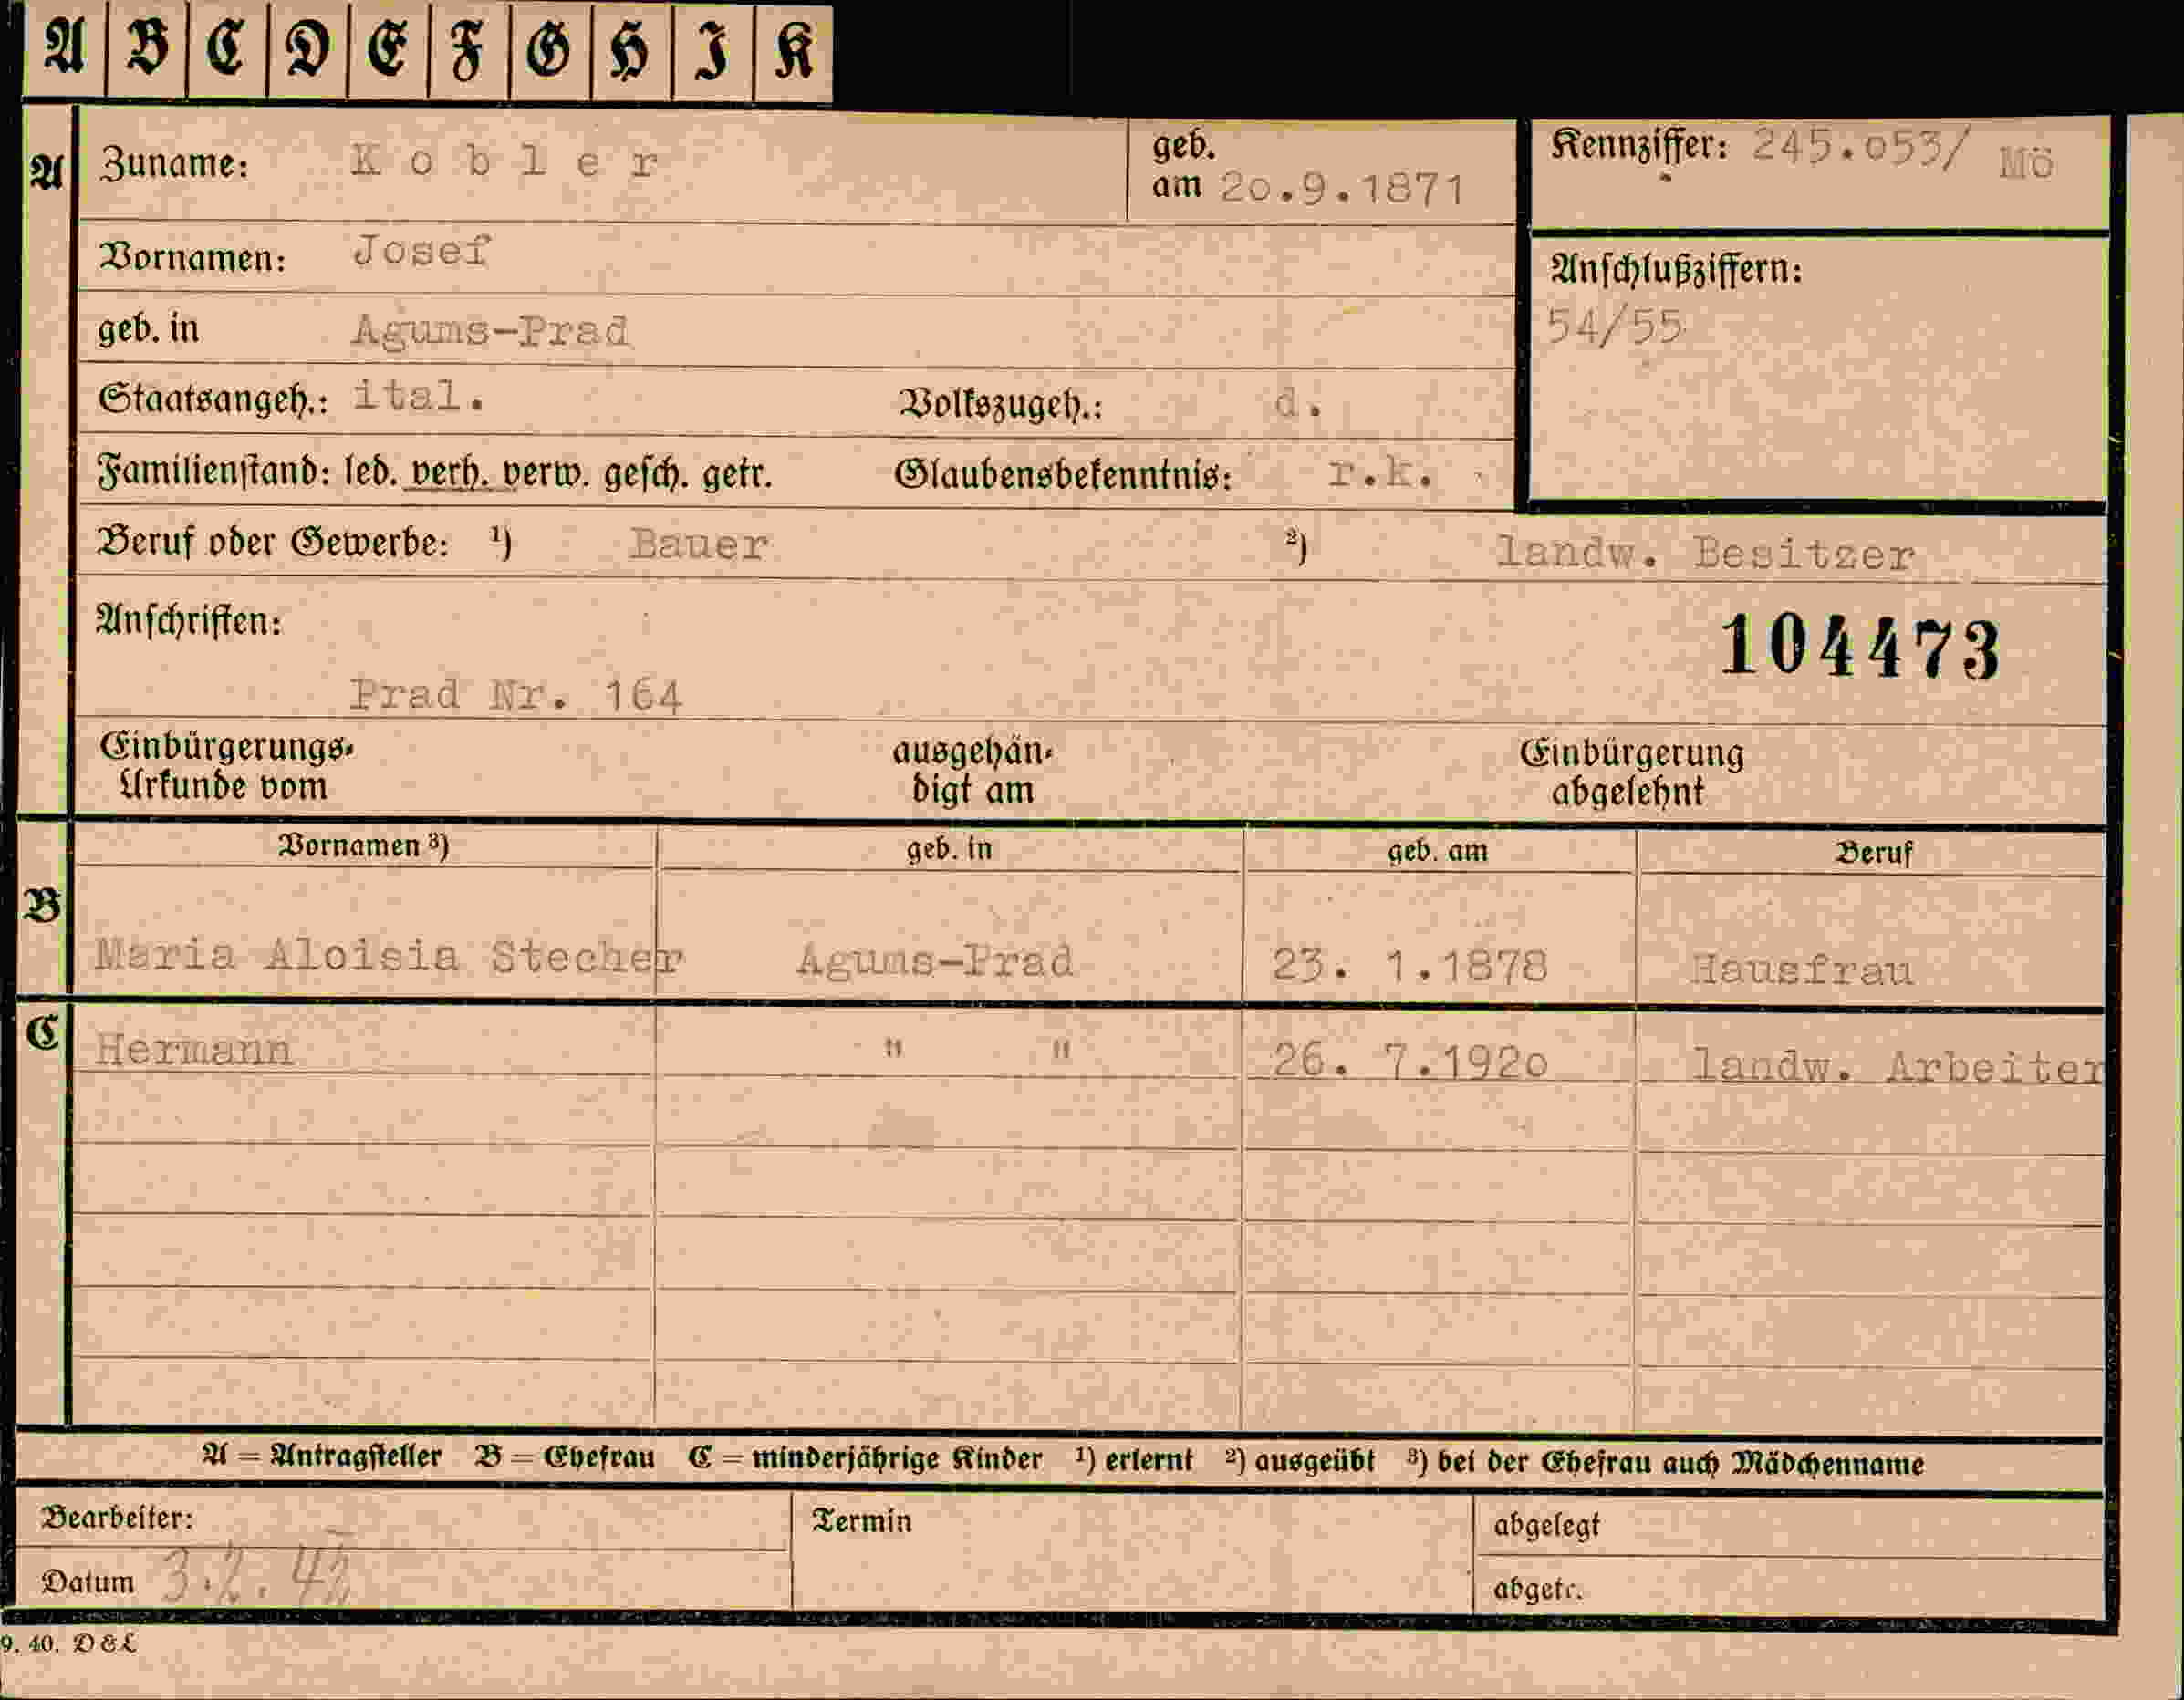 A B C D E F G H I K
A Zuname: Kobler geb. am 20.9.1871 Kennziffer: 245.053/ Mö
Vornamen: Josef Anschlußziffern:
geb. in Agums-Prad 54/55
Staatsangeh.: ital. Volkszugeh.: d.
Familienstand: led. verh. verw. gesch. getr. Glaubensbekenntnis: r.k.
Beruf oder Gewerbe: ¹) Bauer ²) landw. Besitzer
Anschriften: 104473
Prad Nr. 164
Einbürgerungs- ausgehän- Einbürgerung
Urkunde vom digt am abgelehnt
Vornamen ³) geb. in geb. am Beruf
B
Maria Aloisia Stecher Agums-Prad 23. 1.1878 Hausfrau
C Hermann " " 26. 7.1920 landw. Arbeiter
A = Antragsteller B = Ehefrau C = minderjährige Kinder ¹) erlernt ²) ausgeübt ³) bei der Ehefrau auch Mädchenname
Bearbeiter: Termin abgelegt
Datum 3.2.42 abgetr.
9. 40. D & L